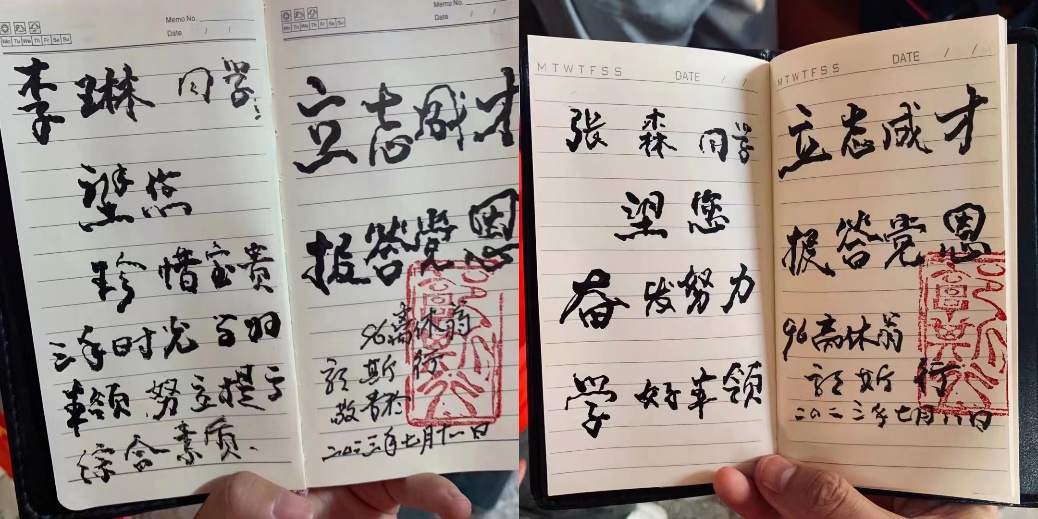 Memo No.
Mo Tu We Th Fr Sa Su
Date / /
李琳同学:
望您
珍惜宝贵
三年时光 学好
本领 努力提高
综合素质.
Memo No.
Mo Tu We Th Fr Sa Su
Date / /
立志成才
报答党恩
96高休翁
敬书
二〇二三年七月十一日
M T W T F S S
DATE / /
张森同学
望您
奋发努力
学好本领
M T W T F S S
DATE / /
立志成才
报答党恩
96高休翁
二〇二三年七月八日